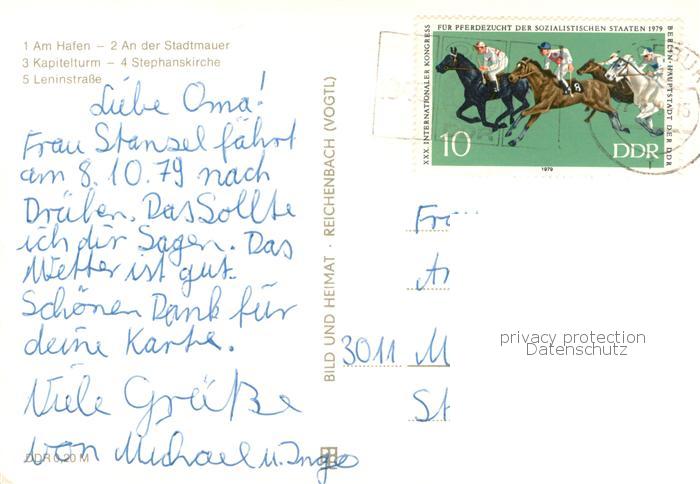 1 Am Hafen – 2 An der Stadtmauer
3 Kapitelturm – 4 Stephanskirche
5 Leninstraße
Liebe Oma!
Frau Stansel fährt
am 8.10.79 nach
Drüben. Das Sollte
ich dir Sagen. Das
Wetter ist gut.
Schönen Dank für
deine Karte.
Viele Grüße
von Michael u. Ingo
DDR 0,20 M
BILD UND HEIMAT · REICHENBACH (VOGTL)
XXX. INTERNATIONALER KONGRESS
FÜR PFERDEZUCHT DER SOZIALISTISCHEN STAATEN 1979
BERLIN-HAUPTSTADT DER DDR
8
10
DDR
1979
3011 M
St
privacy protection
Datenschutz